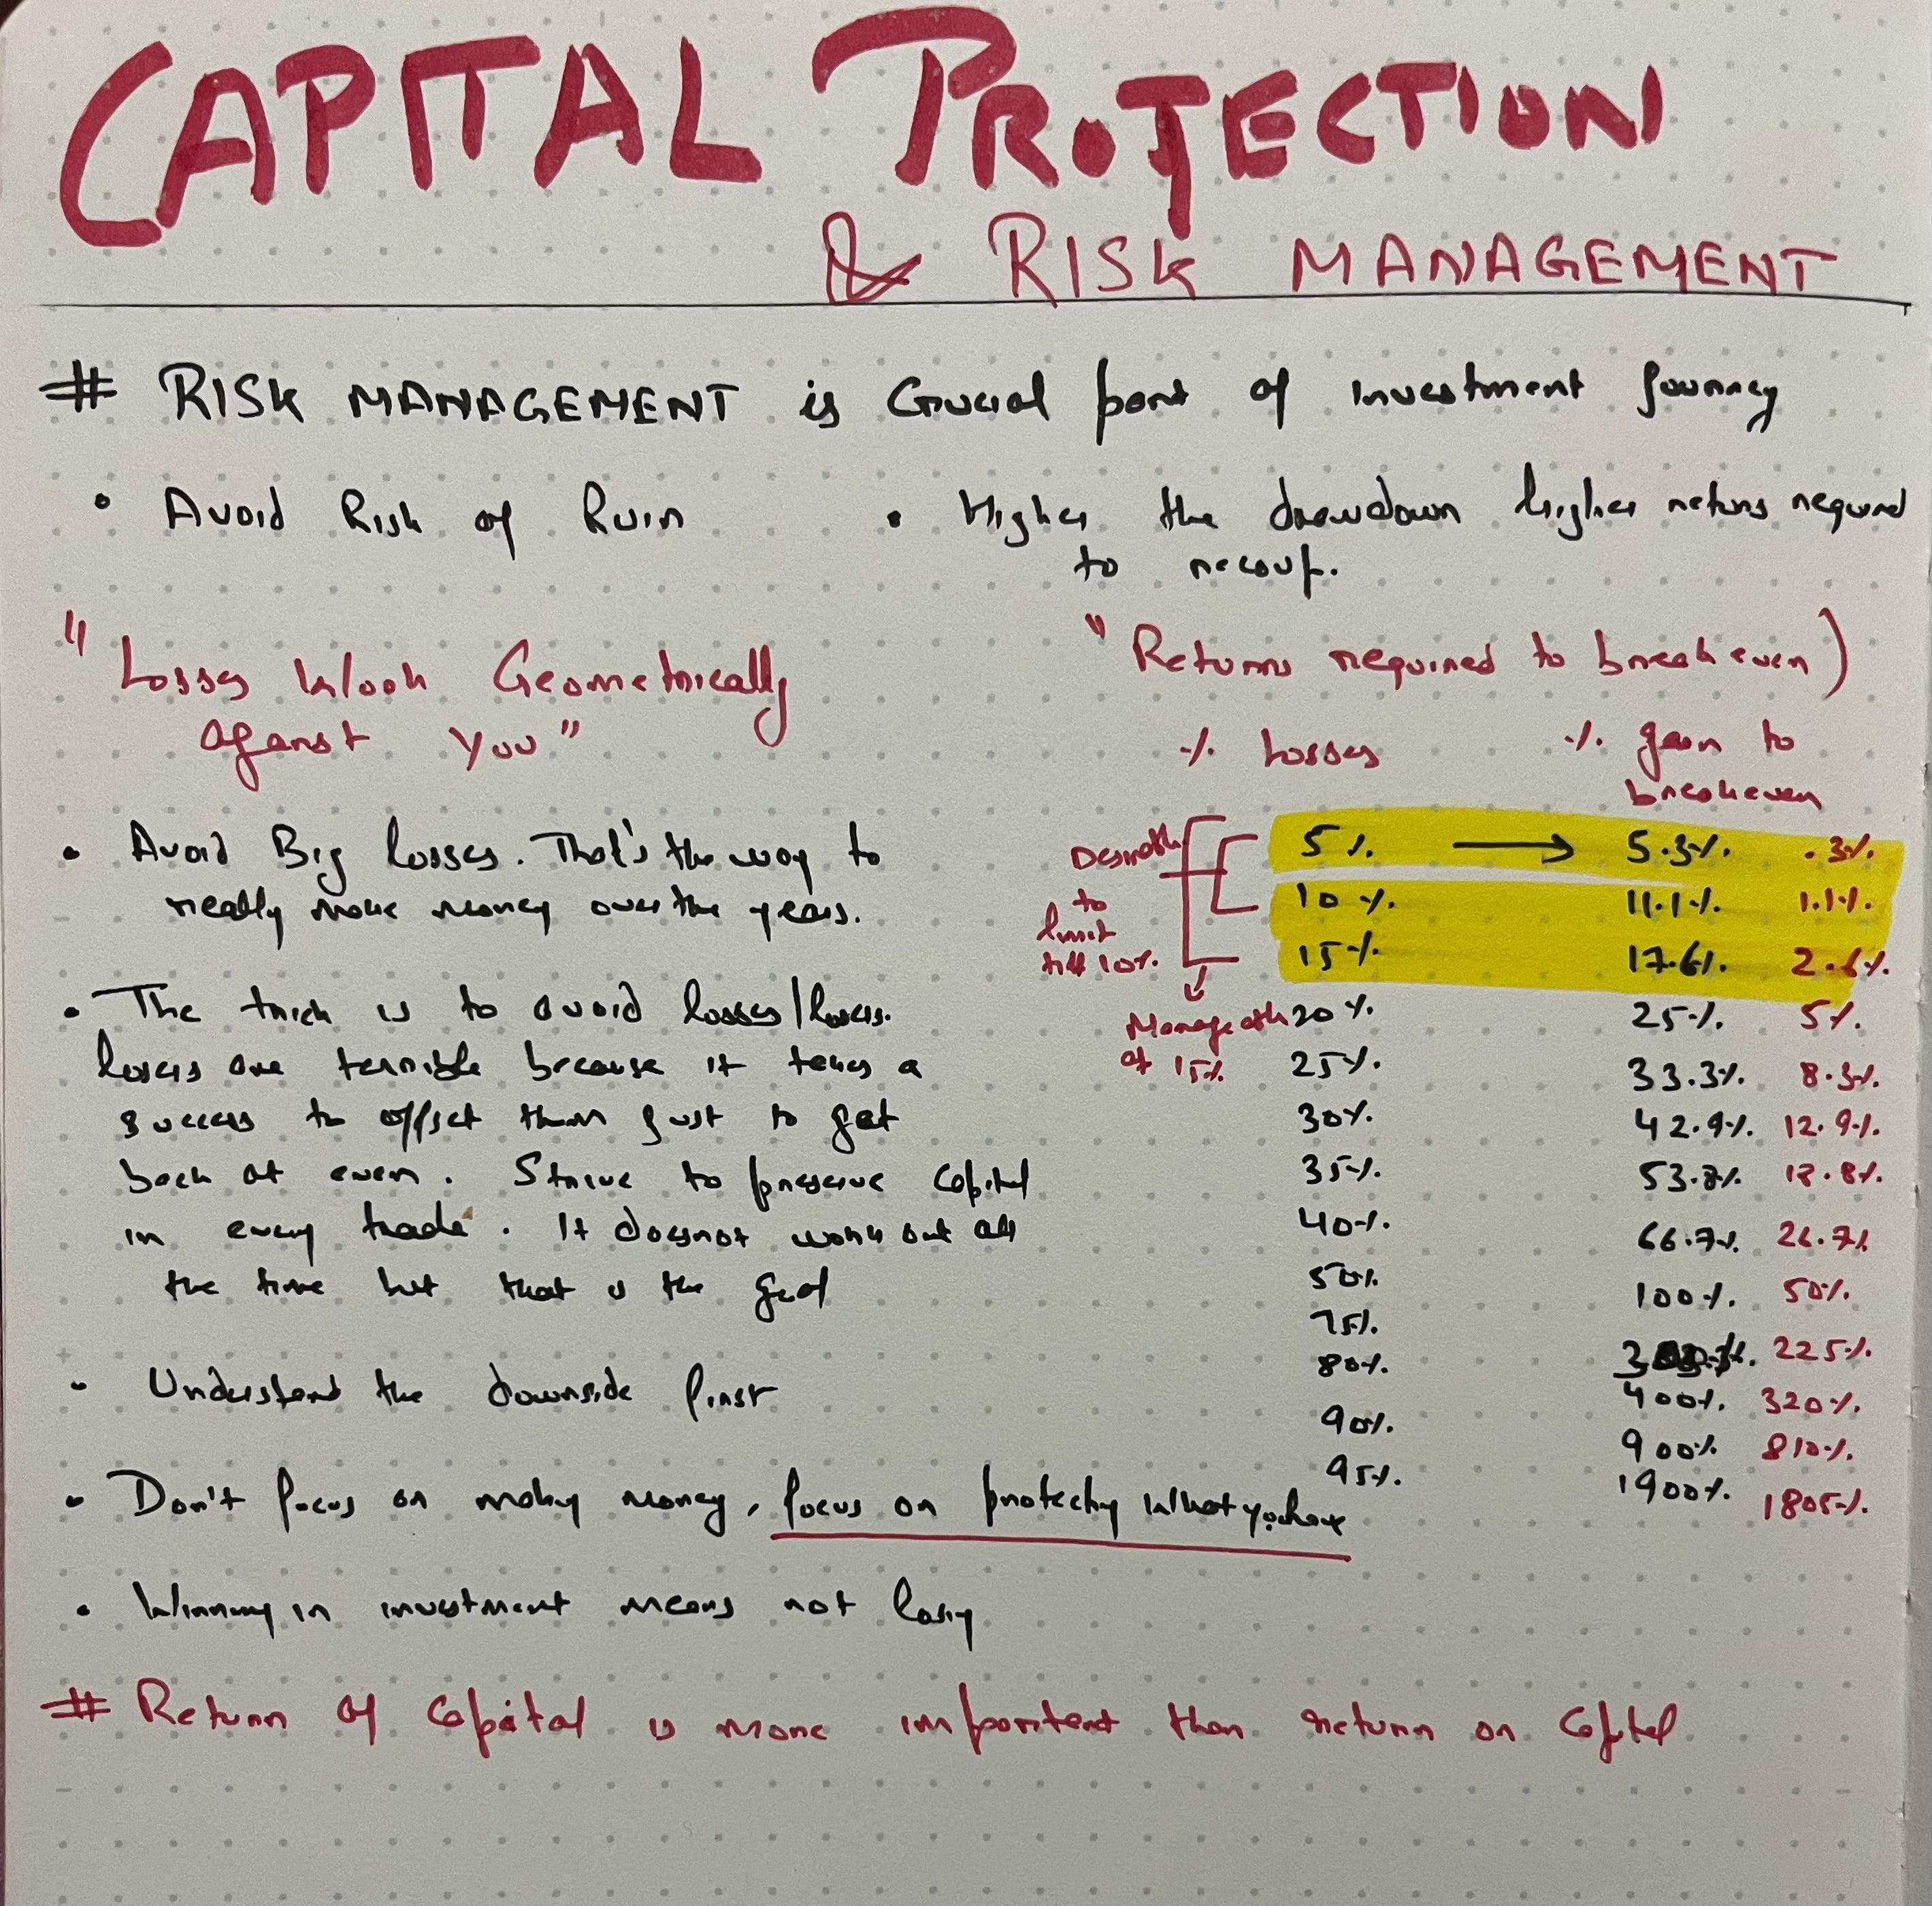 CAPITAL PROTECTION
& RISK MANAGEMENT
# RISK MANAGEMENT is Crucial part of investment Journey
• Avoid Risk of Ruin
• Higher the drawdown higher returns required
to recoup.
"Losses Work Geometrically
against you"
• Avoid Big losses. That's the way to
really make money over the years.
• The trick is to avoid losses/losers.
losers are terrible because it takes a
success to offset them just to get
back at even. Strive to preserve capital
in every trade. It doesnot work out all
the time but that is the goal
• Understand the downside first
• Don't focus on making money, focus on protecting what you have
• Winning in investment means not losing
"Returns required to breakeven)
% Losses % gain to
breakeven
5% → 5.3% .3%
10% 11.1% 1.1%
15% 17.6% 2.6%
20% 25% 5%
25% 33.3% 8.3%
30% 42.9% 12.9%
35% 53.8% 18.8%
40% 66.7% 26.7%
50% 100% 50%
75% 225%
80% 400% 320%
90% 900% 810%
95% 1900% 1805%
to
limit
till 10%
of 15%
# Return of Capital is more important than return on Capital